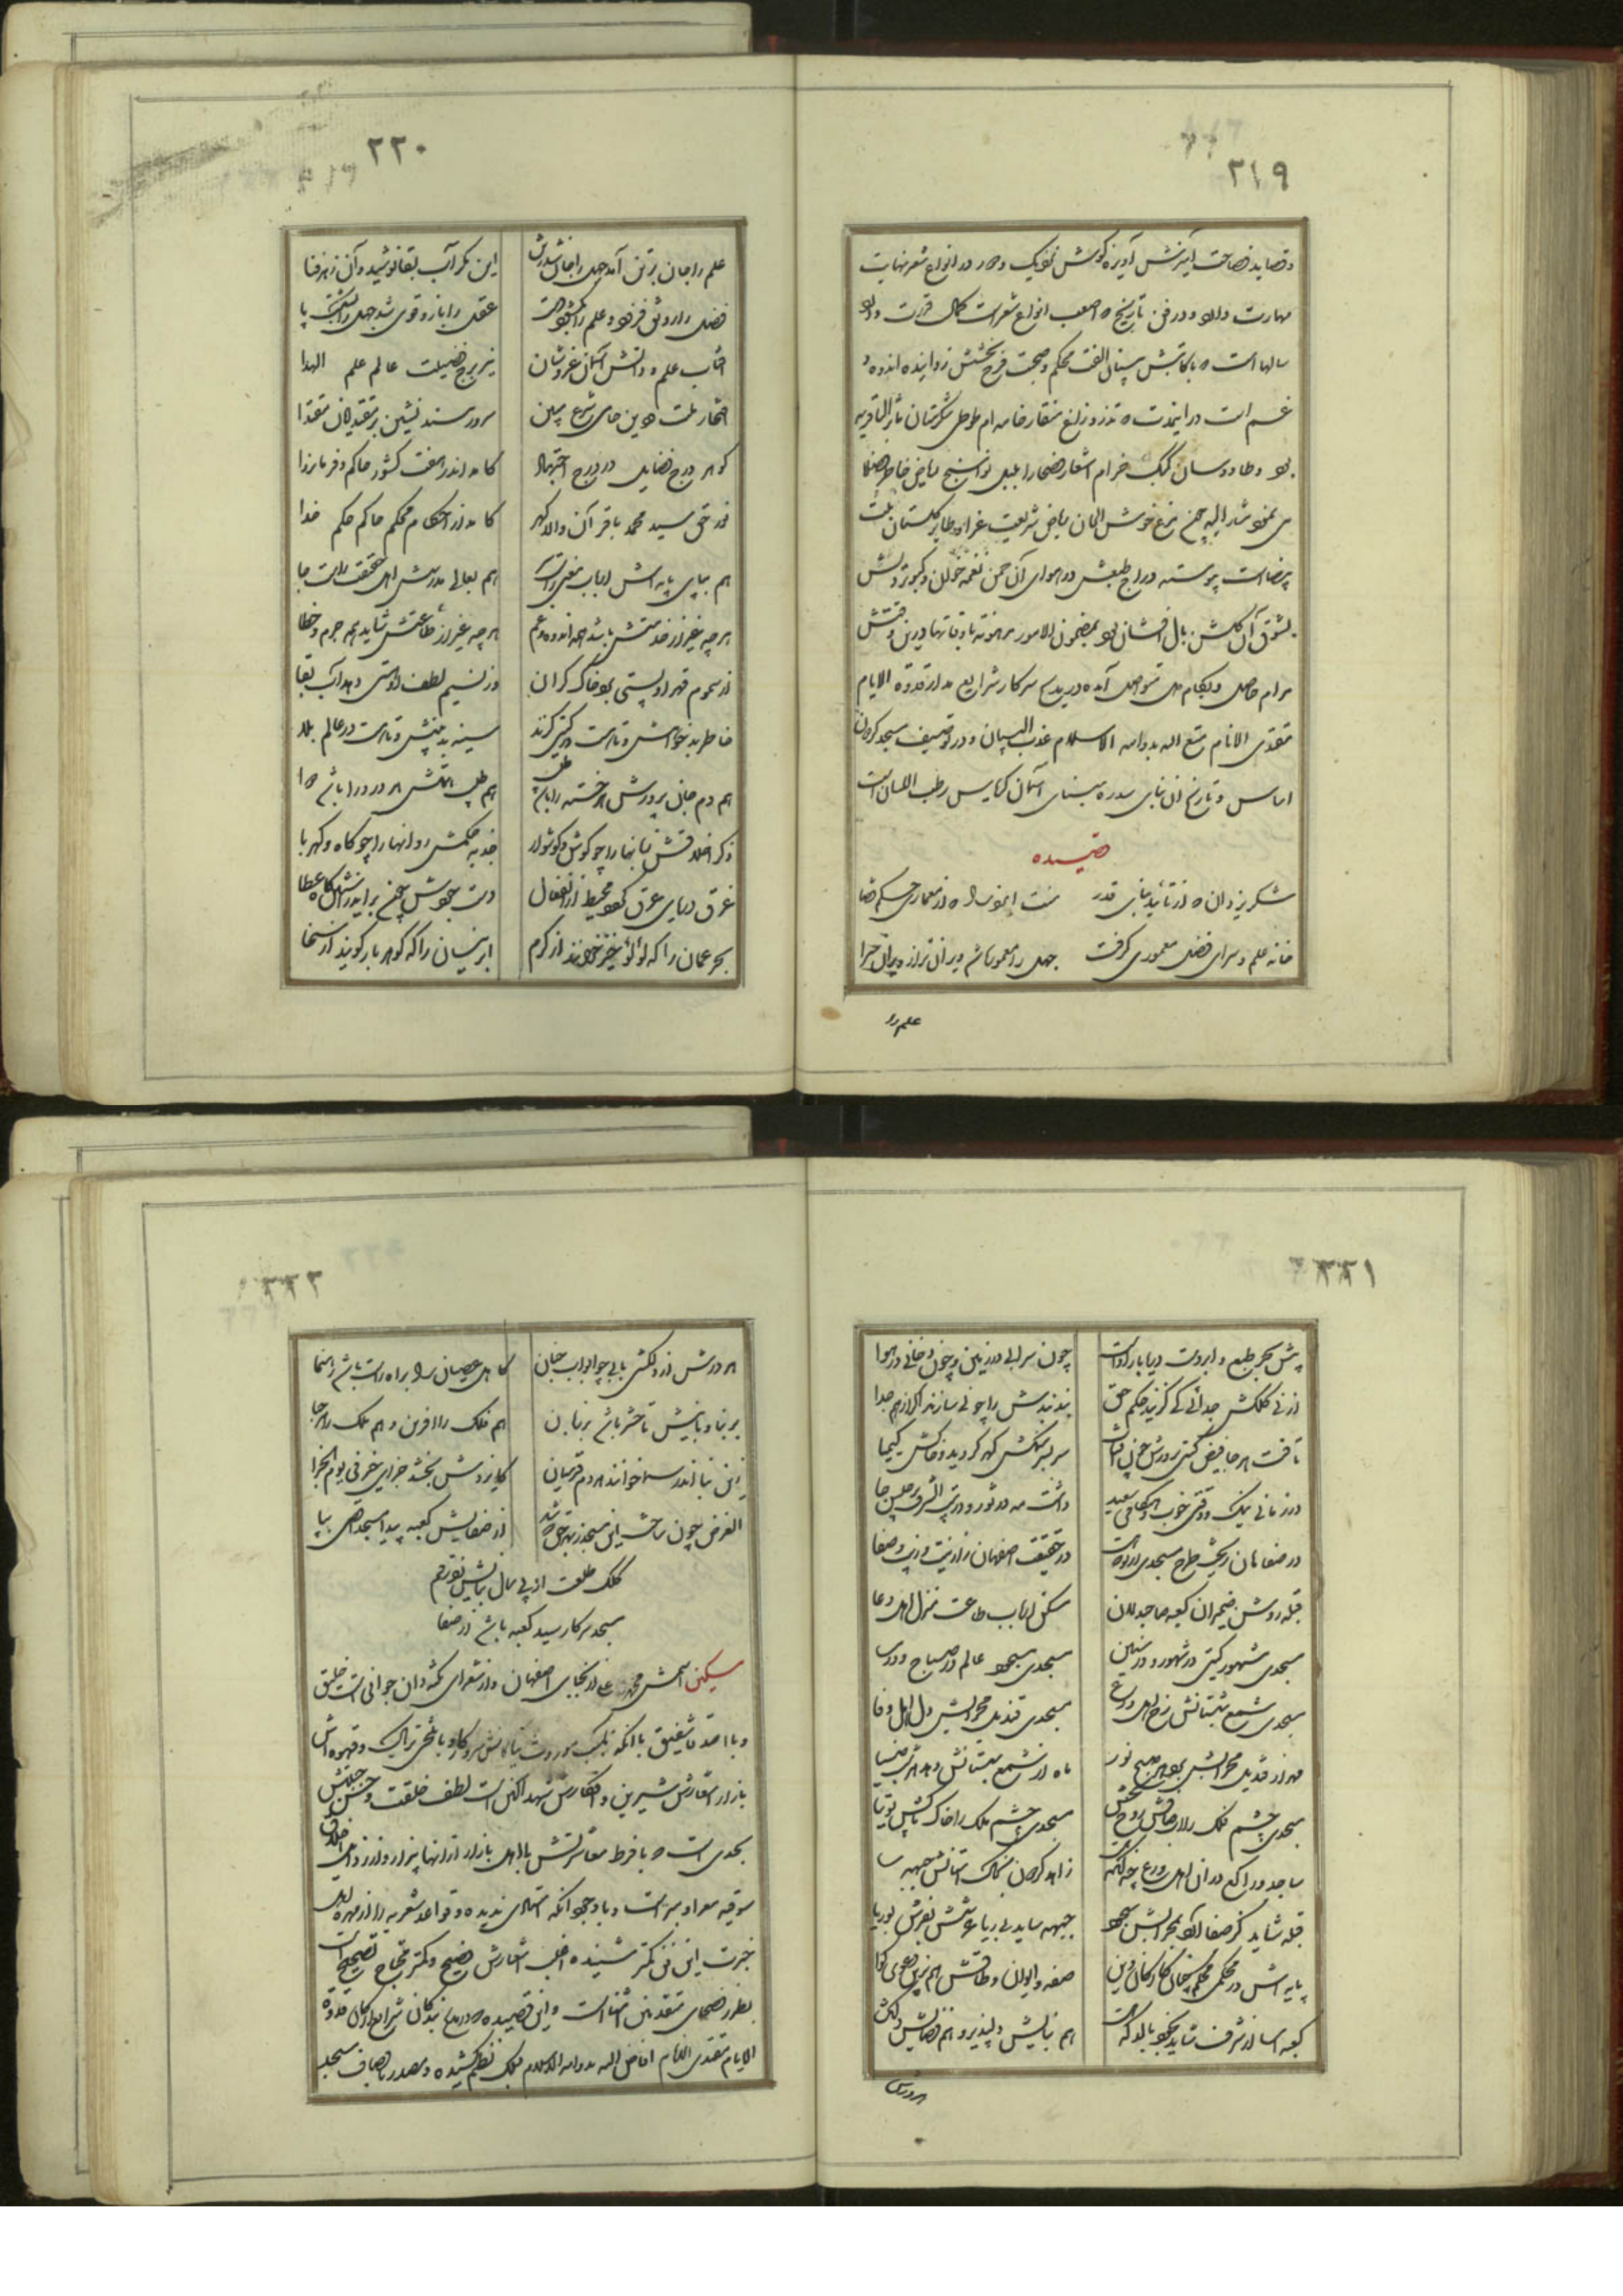 ۲۱۹
و قصاید فصاحت آمیزش آویزه گوش نزدیک و دور در انواع شعر نهایت
مهارت دارد و در فن تاریخ که اصعب انواع شعر است کمال قدرت دارد
سالها است که با کاتبش الفت محکم و صحبت فرح بخشش زداینده اندوه و
غم است در این مدت که تذرو زرین منقار خامه ام طوطی شکرستان
بود و طاووسان کبک خرام اشعار فصحا را بلبل نواسنج ریاض خاطر
می نمود مشارالیه چون مرغ خوش الحان ریاض شریعت غرا و طایر گلستان ملت
بیضاست پیوسته دراج طبعش در هوای آن چمن نغمه خوان و کبوتر دلش
بشوق آن گلشن بال افشان بود بمضمون الامور مرهونة باوقاتها درین وقتش
مرام حاصل و بکام دل متواصل آمده در مدح سرکار شرایع مدار قدوة الایام
مقتدی الانام متع الله بدوامه الاسلام عذب البیان و در توصیف مسجد گردون
اساس و تاریخ آن بنای سدره مبنای آسمان رطب اللسان است
قصیده
شکر یزدان که از تأیید بنای قدر منت ایزد را که از معماری حکم قضا
خانه علم و سرای فضل معموری گرفت جهل را معموره شد ویران تر از ویران سرا
علم را
۲۲۰
علم را جان بر تن آمد جهل را جان شد ز تن این مگر آب بقا نوشید و آن زهر فنا
فضل را رونق فزود و علم را بگشود دست عقل را بازو قوی شد جهل را بشکست پا
آفتاب علم و دانش آسان عز و شان نیر برج فضیلت عالم علم الهدا
افتخار ملت و دین حامی شرع مبین سرور مسند نشین بر مقتدایان مقتدا
گوهر درج فضایل در درج اجتهاد کامد اندر هفت کشور حاکم و فرمانروا
نور حق سید محمد باقر آن والا گهر کامد از احکام محکم حاکم حکم خدا
هم بپای پایه اش ارباب معنی راست هم بعالی مدرسش اهل حقیقت راست جا
هر چه غیر از خدمتش باشد همه اندوه و غم هر چه غیر از طاعتش شاید همه جرم و خطا
از سموم قهر او پستی بود خاک گران وز نسیم لطف او مستی دهد آب بقا
خاطر بدخواهش و تار است در گیتی گزند سینه بدبینش و تار است در عالم بلا
هم دم جان پرورش هر خسته را باشد طبیب هم طب آتش هر درد را باشد دوا
ذکر اخلاقش زبانها را چو گوش و گوشوار جذبه حکمش روانها را چو کاه و کهربا
غرق دریای عرق گردد محیط از انفعال دست جودش چون برآید ز آستین گاه عطا
بحر عمان را که لؤلؤ خیز خوانند از کرم ابر نیسان را که گوهر بار گویند از سخا
۲۲۱
پیش بحر طبع و ابر دست دریا بار اوست چون سرابی در زمین و چون دخانی در هوا
از نی کلکش جدائی کی گزیند حکم حق بند بندش را چو نی سازند اگر از هم جدا
تافت هر جا فیض گیتی پرورش چون آفتاب سر بسر سنگش گهر گردید و خاکش کیمیا
در زمانی نیک و وقتی خوب و هنگامی سعید داشت مه در ثور و در بیت الشرف برجیس جا
در صفاهان ریخت طرح مسجدی در حقیقت اصفهان را زینت و زیب و صفا
قبله روشن ضمیران کعبه صاحبدلان مسکن ارباب طاعت منزل اهل دعا
مسجدی مشهور گیتی در شهور و در سنین مسجدی مسجود عالم در صباح و در مسا
مسجدی شمع شبستانش رخ اهل ورع مسجدی قندیل محرابش دل اهل وفا
مهر از قندیل محرابش بود هر صبح نور ماه از شمع شبستانش دهد هر شب ضیا
مسجدی چشم فلک را طاقش روح بخش مسجدی چشم ملک را خاک پاکش توتیا
ساجد و راکع در آن اهل ورع چون زاهد گردن بخاک آستانش جبهه سا
قبله شاید کز صفا آرد بمحرابش سجود جبهه ساید بی ریا عرشش بفرش بوریا
پایه اش در محکمی محکم چنان کارکان دین صفه و ایوان و طاقش هم برین دعوی گوا
کعبه آسا از شرف شاید بخود بالد که هم بنایش دلپذیر و هم فضایش دلگشا
هر درش
۲۲۲
هر درش از دلگشی بابی چو ابواب جنان کاهل عصیان را براه راست باشد رهنما
بر بنا و بانیش تا حشر باشد بر زبان هم فلک را آفرین و هم ملک را مرحبا
زین بنا اندر سما خوانند هر دم قدسیان کایزدش بخشد جزای خیر فی یوم الجزا
الغرض چون ساخت این مسجد ز بهر حق از صفایش کعبه پیدا مسجد اقصی بپا
کلک طلعت از پی سال بنایش زد رقم
مسجد سرکار سید کعبه باشد از صفا
مسکین اسمش محمد علی از نجبای اصفهان و از شعرای نکته دان جوانی است خلیق
و با اصدقا شفیق با آنکه بکسب موروث و با فخر تریاک و قهوه اش
بازار اشعارش شیرین و افکارش شهد آگین است لطف خلقت و حسن جبلتش
بحدی است که با فرط معاشرتش با اهل بازار از آنها بیزار و از رذایل اخلاق
سوقیه معرا و مبراست و با وجود آنکه استادی ندیده و قواعد شعریه را از مهره اهل
خبرت این فن کمتر شنیده اغلب اشعارش فصیح و کمتر محتاج تصحیح است
بطرز فصحای متقدمین آشناست و این قصیده که در مدح بندگان شرایع ارکان قدوة
الایام مقتدی الانام افاض الله بدوامه الاسلام بکلک نظم کشیده و مصدر باوصاف مسجد